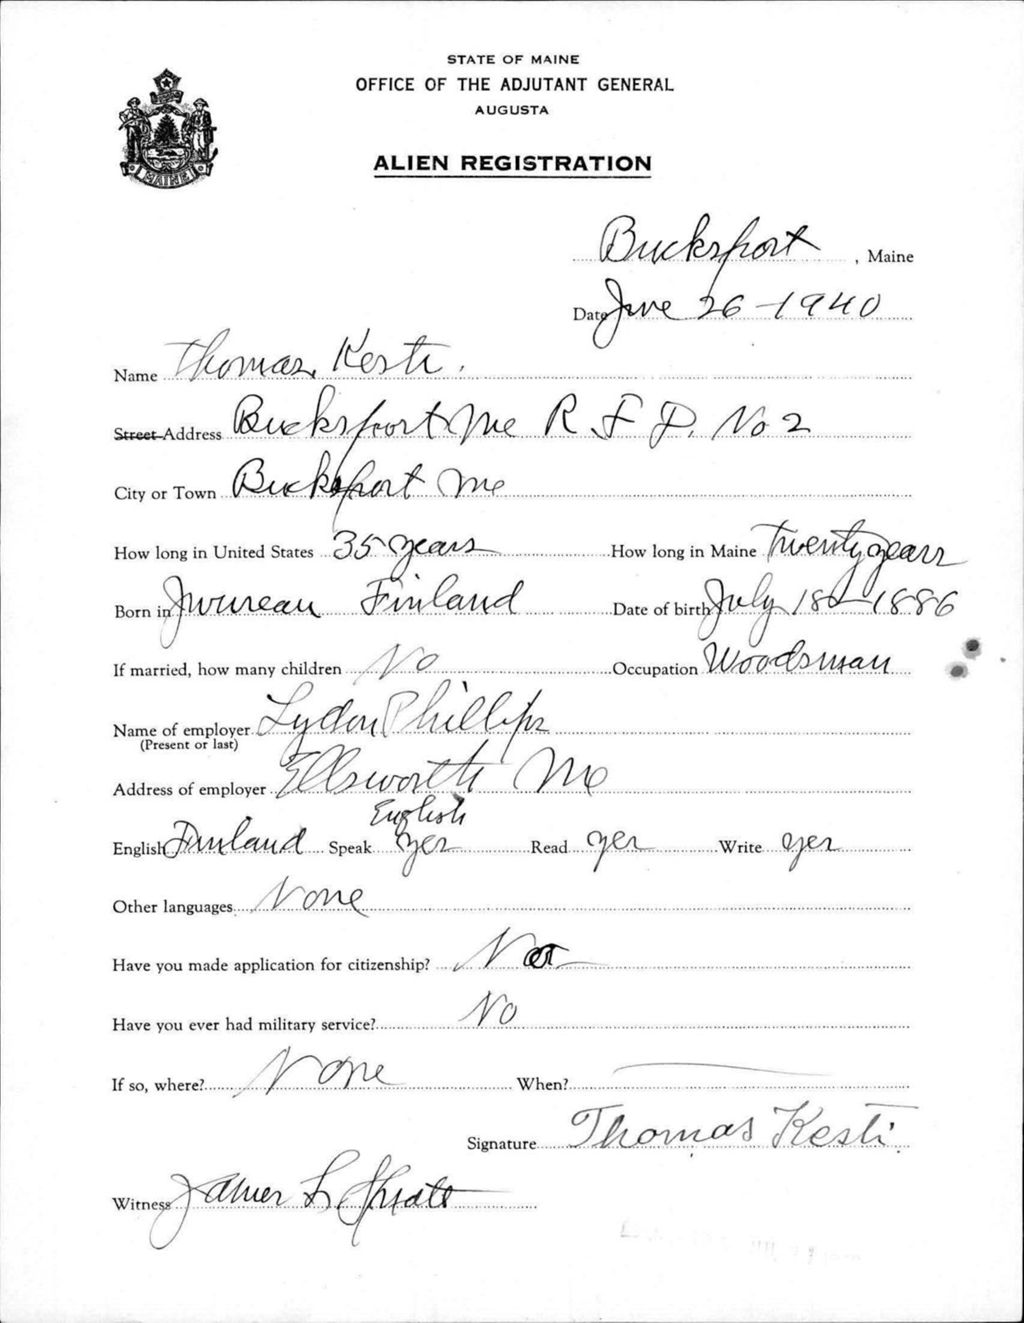 STATE OF MAINE
OFFICE OF THE ADJUTANT GENERAL
AUGUSTA
ALIEN REGISTRATION
MAINE
Bucksport, Maine
Date June 26-1940
Name Thomas Kesti.
Street Address Bucksport Me R. F. D. No 2
City or Town Bucksport Me
How long in United States 35 years How long in Maine Twenty years
Born in Finland Date of birth July 18-1886
If married, how many children No Occupation Woodsman
Name of employer Lydon Phillips
(Present or last)
Address of employer Ellsworth Me
English
English Finland Speak yes Read yes Write yes
Other languages None
Have you made application for citizenship? Not
Have you ever had military service? No
If so, where? None When?
Signature Thomas Kesti
Witness James L